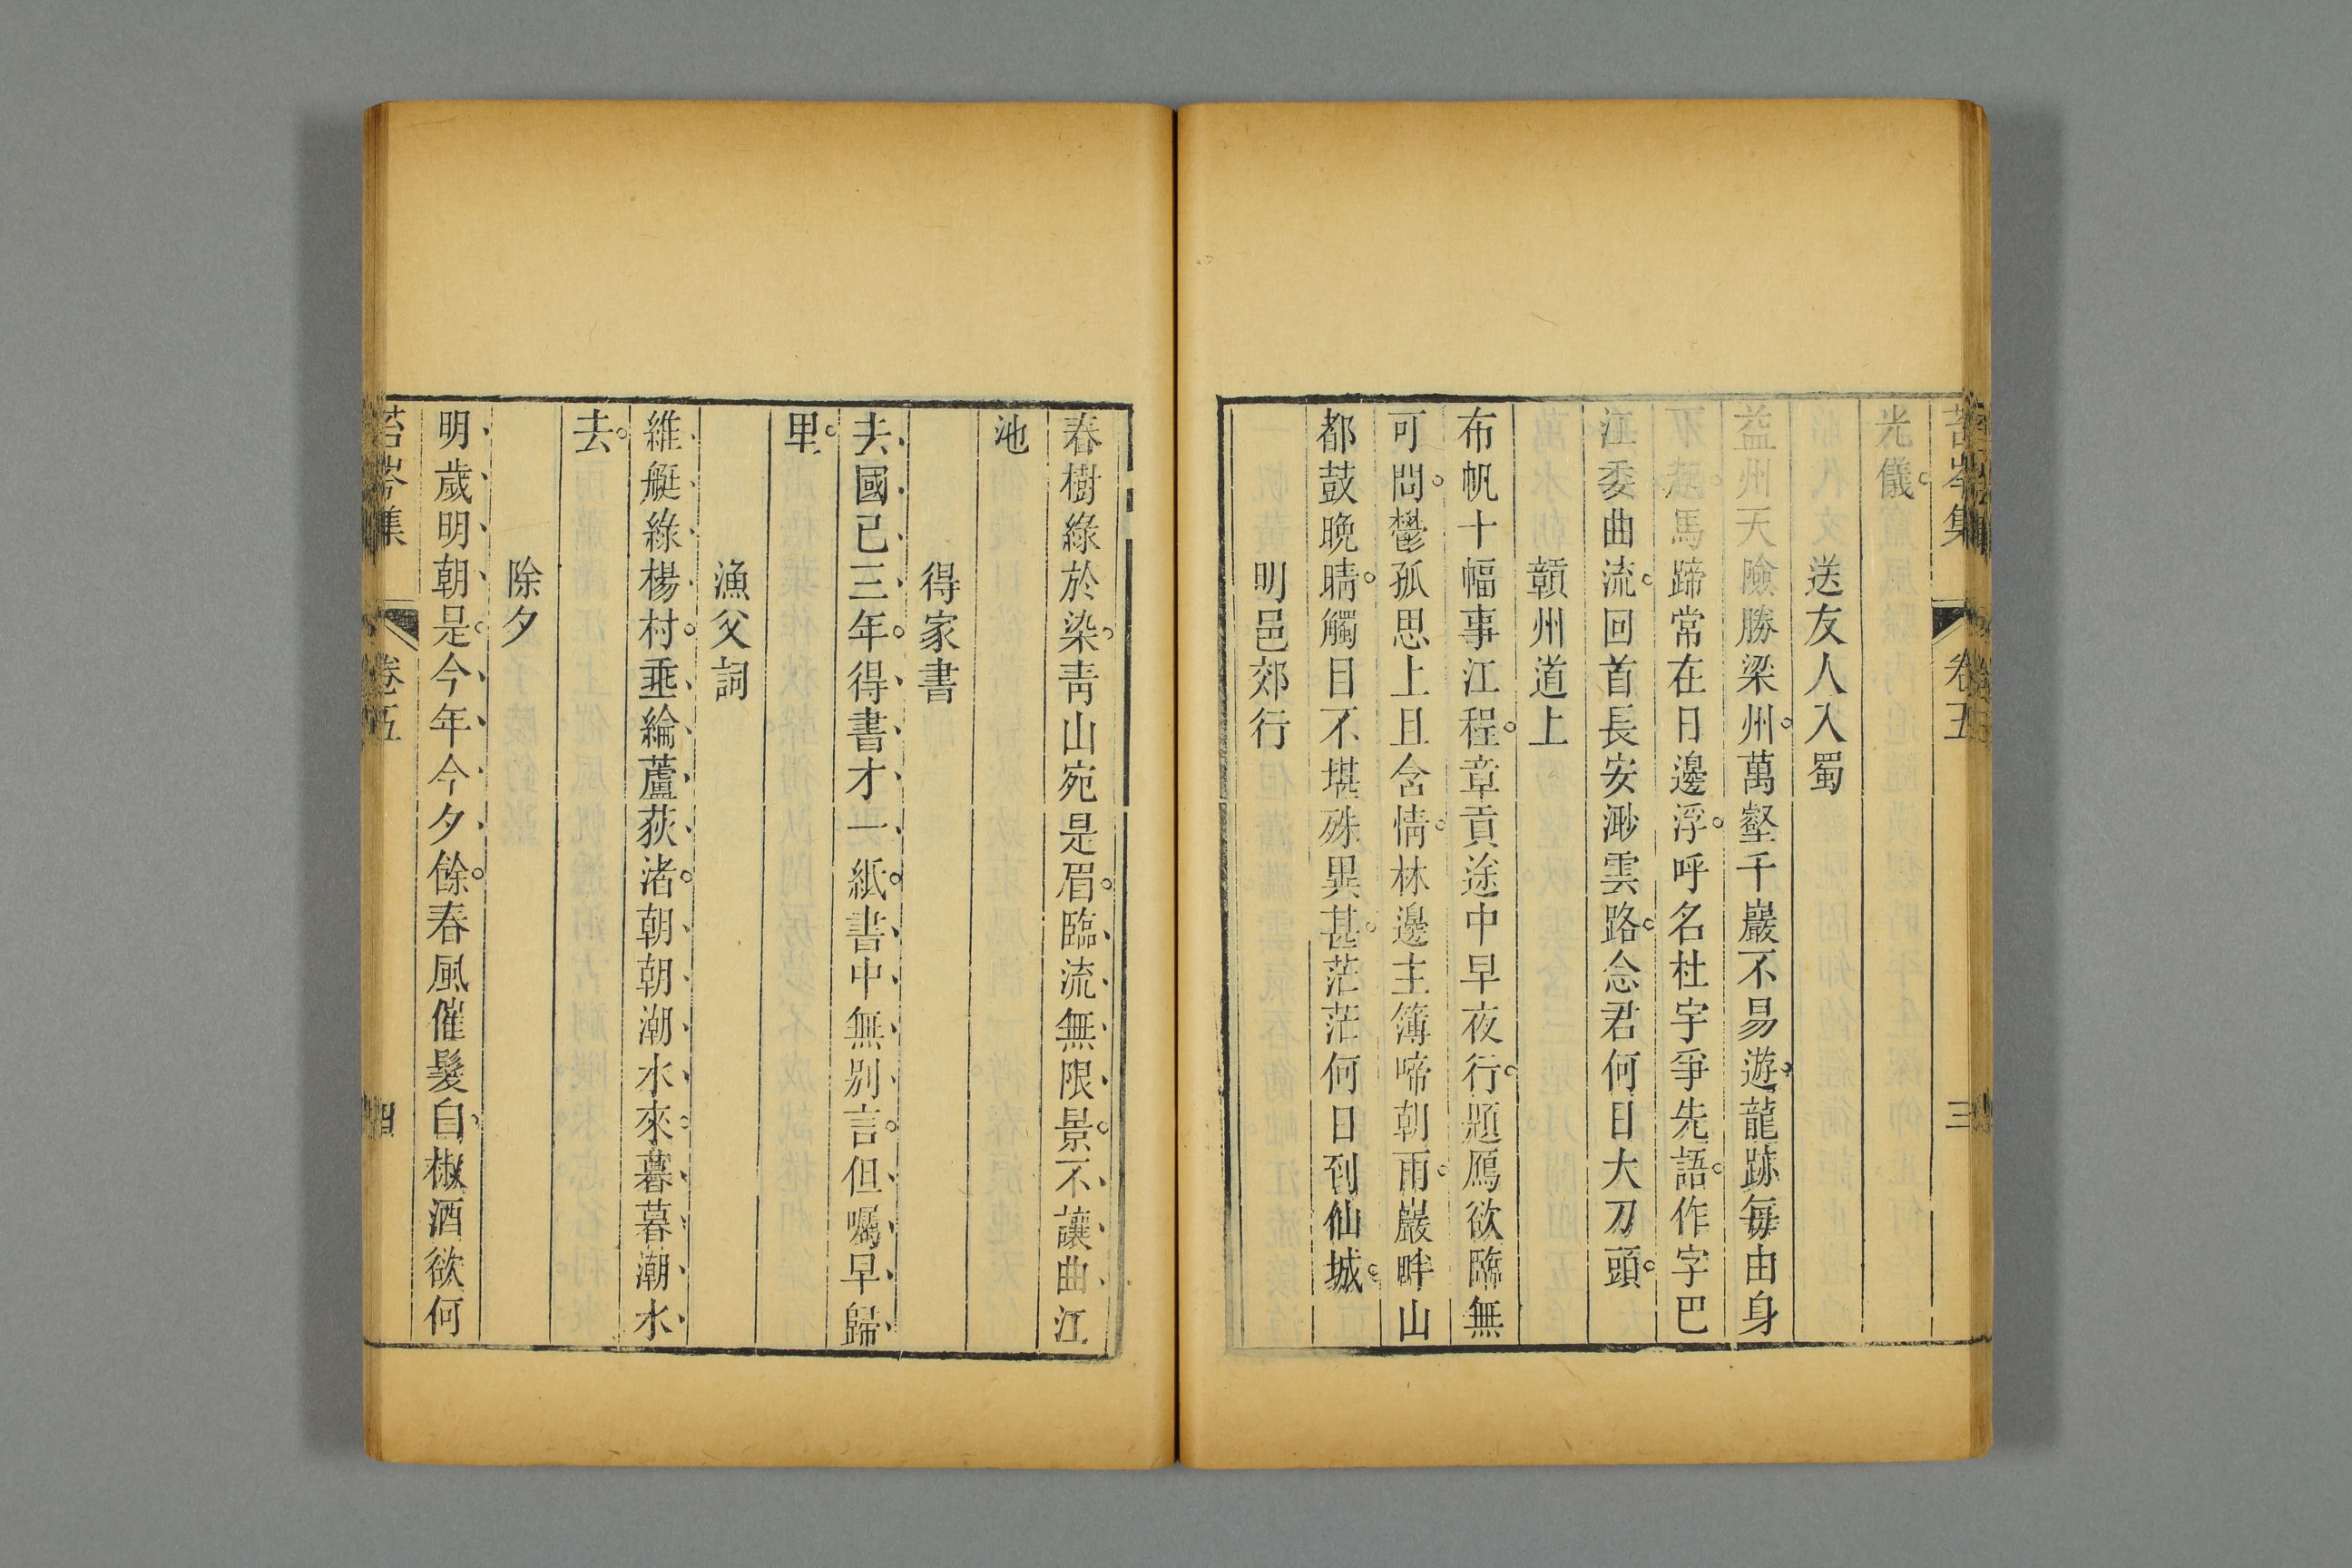 苔岑集 卷五 三
光儀
送友人入蜀
益州天險勝梁州萬壑千巖不易遊龍跡每由身
不起馬蹄常在日邊浮呼名杜宇爭先語作字巴
江委曲流回首長安渺雲路念君何日大刀頭
贛州道上
布帆十幅事江程章貢途中早夜行題鴈欲臨無
可問鬱孤思上且含情林邊主簿啼朝雨巖畔山
都鼓晚晴觸目不堪殊異甚茫茫何日到仙城
明邑郊行
春樹綠於染青山宛是眉臨流無限景不讓曲江
池
得家書
去國已三年得書才一紙書中無別言但囑早歸
里
漁父詞
維艇綠楊村垂綸蘆荻渚朝朝潮水來暮暮潮水
去
除夕
明歲明朝是今年今夕餘春風催髮白椒酒欲何
苔岑集 卷五 四